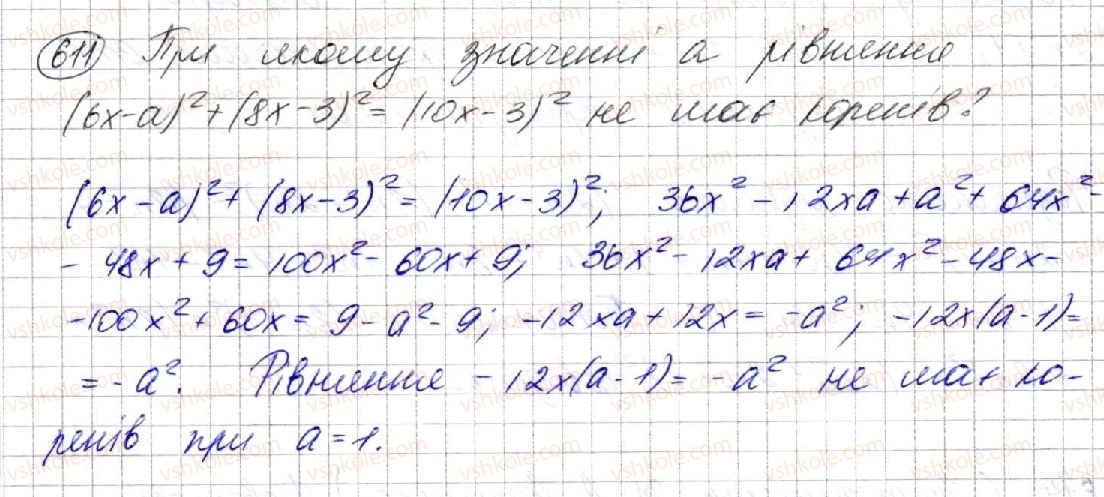 611 При якому значенні а рівняння
(6x-a)²+(8x-3)²=(10x-3)² не має коренів?
(6x-a)²+(8x-3)²=(10x-3)²; 36x²-12xa+a²+64x²-
-48x+9=100x²-60x+9; 36x²-12xa+64x²-48x-
-100x²+60x=9-a²-9; -12xa+12x=-a²; -12x(a-1)=
=-a². Рівняння -12x(a-1)=-a² не має ко-
ренів при a=1.